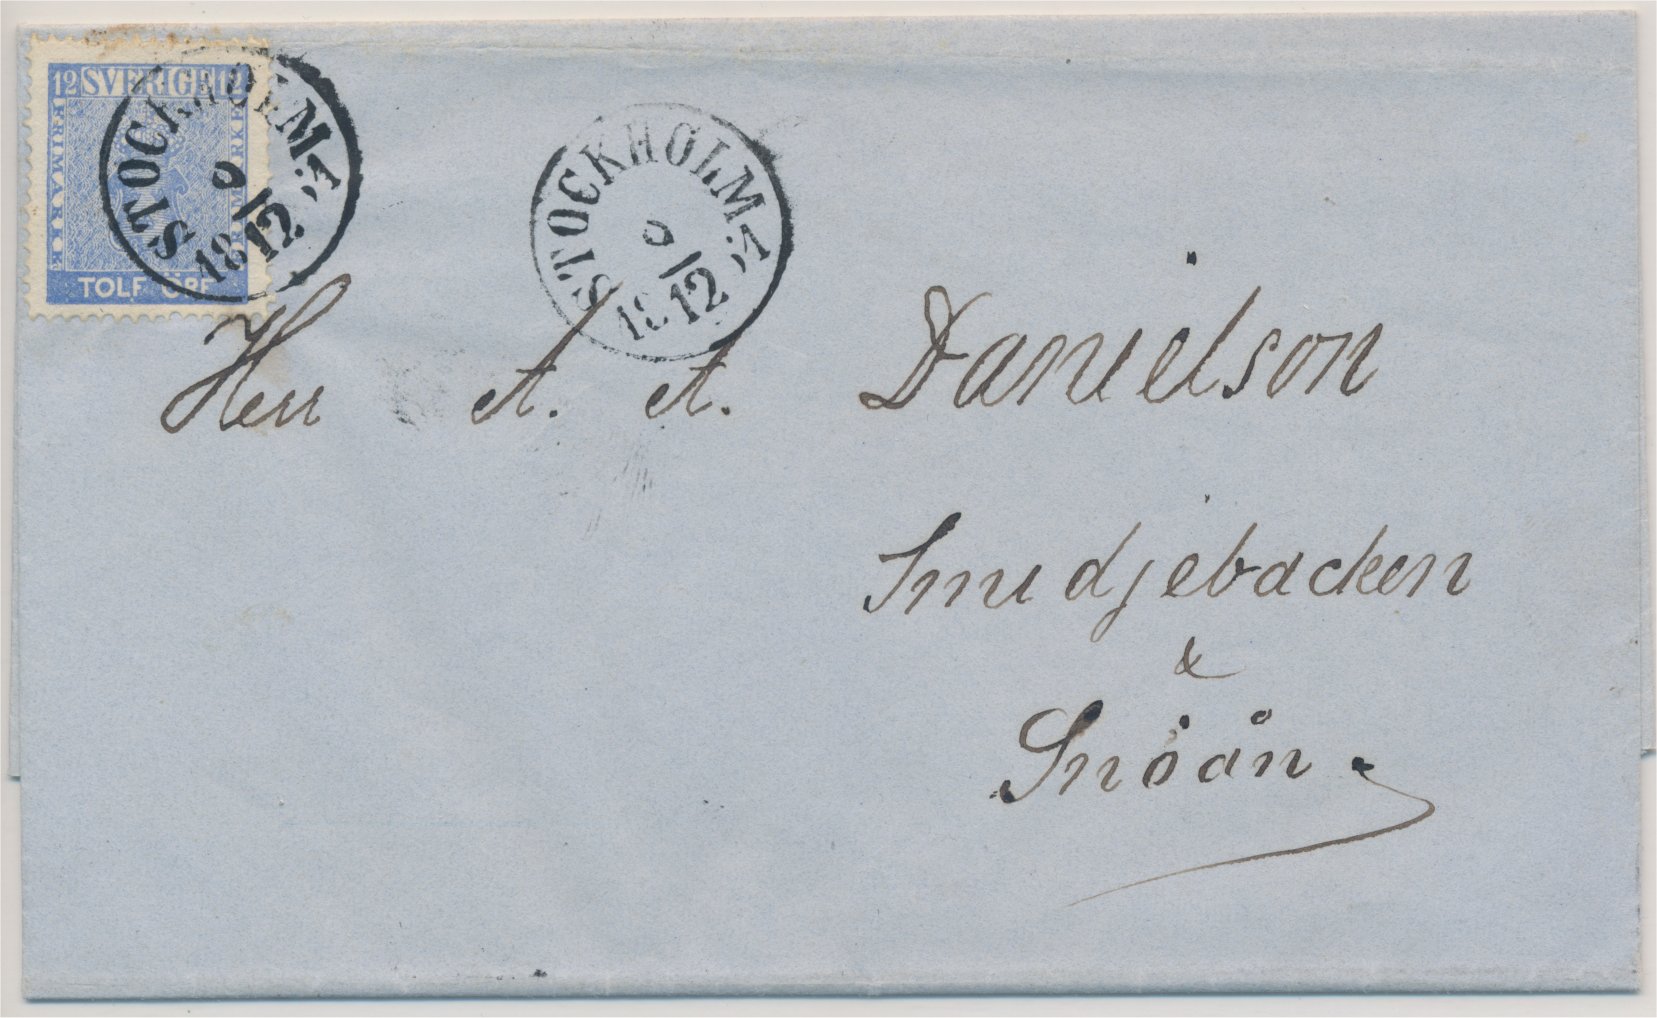 12 SVERIGE 12
FRIMÄRKE
FRIMÄRKE
TOLF ÖRE
STOCKHOLM
9
12
STOCKHOLM
9
12
Herr A. A. Danielson
Smedjebacken
&
Snöån.